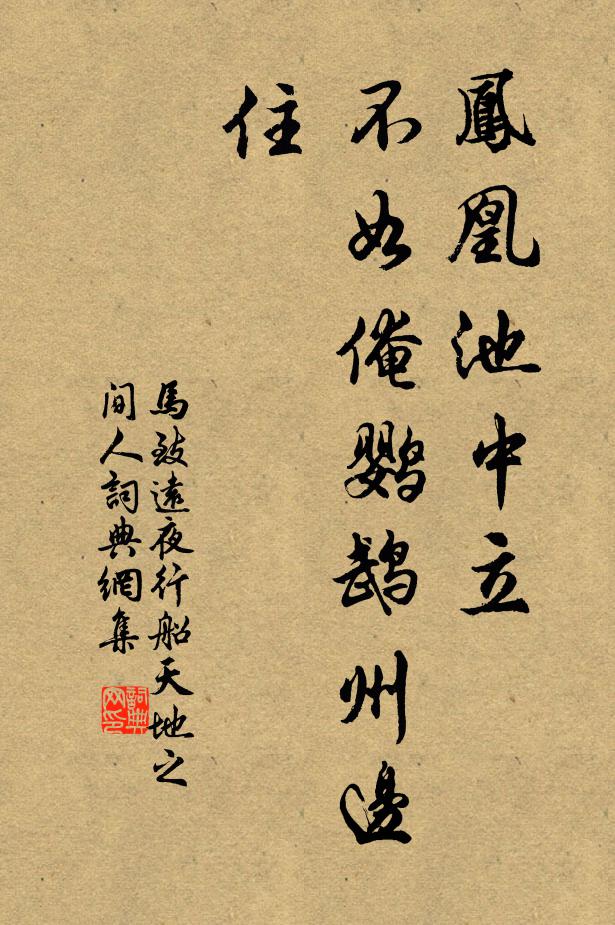 鳳凰池中立
不如俺鸚鵡州邊
住
馬致遠夜行船天地之
間人詞典網集
詞典
网印